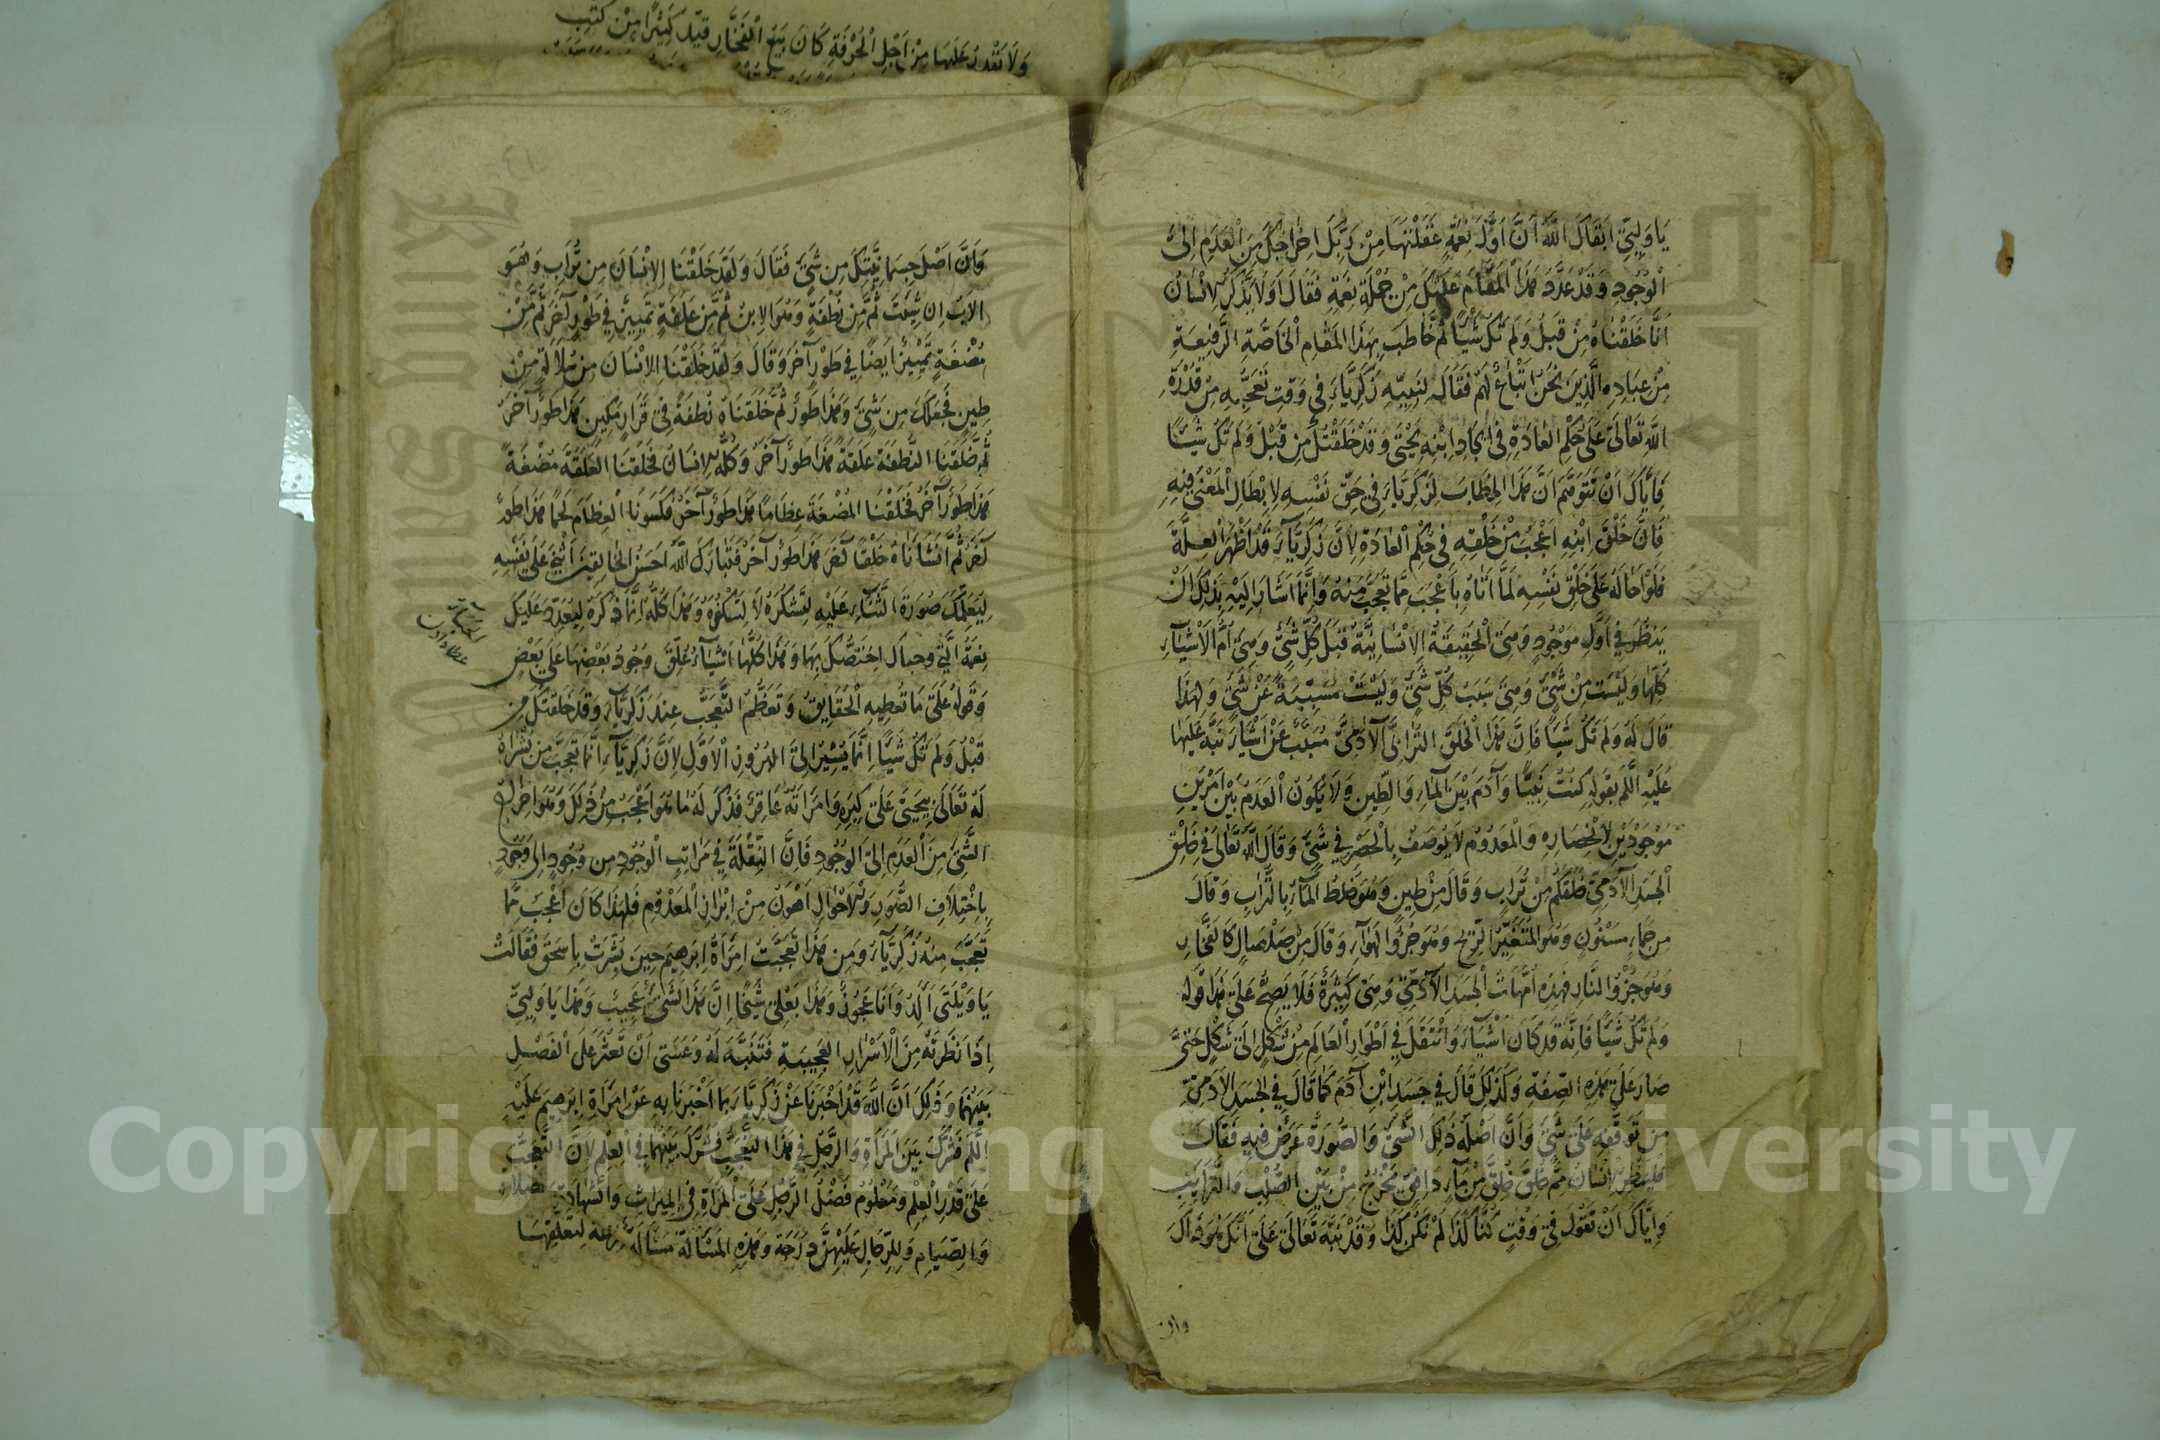 ولا تقدر عليها من اجل الحرفة كان يبيع الفخار قيد كثيرا من كتب
يا وليي ابقاك الله ان اول نعمة عقلتها من ربك اخراجك من العدم الى
الوجود وقد عدد هذا المقام عليك من جملة نعمه فقال اولا يذكر الانسان
انا خلقناه من قبل ولم تك شيئا ثم خاطب بهذا المقام الخاصة الرفيعة
من عباده الذين نحن اتباع لهم فقال لنبيه زكرياء في وقت تعجبه من قدرة
الله تعالى على حكم العادة في ايجاد ابنه يحيى وقد خلقتك من قبل ولم تك شيئا
فاياك ان تتوهم ان هذا الخطاب لزكرياء في حق نفسه لابطال المعنى فيه
فان خلق ابنه اعجب من خلقه في حكم العادة لان زكرياء قد اظهر العلة
فلو احاله على خلق نفسه لما اتاه باعجب مما تعجب منه وانما اشار اليه بذلك ان
ينظر في اول موجود وهي الحقيقة الانسانية قبل كل شيء وهي ام الاشياء
كلها وليست من شيء وهي سبب كل شيء وليست مسببة عن شيء ولهذا
قال له ولم تك شيئا فان هذا الخلق الترابي الآدمي مسبب عن اشياء نبه عليها
عليه السلم بقوله كنت نبيا وآدم بين الماء والطين ولا يكون العدم بين امرين
موجودين لانحصاره والمعدوم لا يوصف بالحصر في شيء وقال الله تعالى في خلق
الجسد الآدمي خلقكم من تراب وقال من طين وهو خلط الماء بالتراب وقال
من حماء مسنون وهو المتغير الريح وهو جزؤ الهواء وقال من صلصال كالفخار
وهو جزؤ النار فهذه امهات الجسد الآدمي وهي كثيرة فلا يصح على هذا قوله
ولم تك شيئا فانه قد كان اشياء وانتقل في اطوار العالم من شكل الى شكل حتى
صار على هذه الصفة وكذلك قال في جسد ابن آدم كما قال في الجسد الآدمي
من توقفه على شيء وان اصله ذلك الشيء والصورة عرض فيه فقال
فلينظر الانسان مم خلق خلق من ماء دافق يخرج من بين الصلب والترائب
واياك ان تقول في وقت كنا كذا لم نكن كذا وقد نبه تعالى على انك هو ذاك
وان
وان اصل جسمانيتك من شيء فقال ولقد خلقنا الانسان من تراب وهو
الاب ان شئت ثم من نطفة وهو الابن ثم من علقة تمييز في طور آخر ثم من
مضغة تمييز ايضا في طور آخر وقال ولقد خلقنا الانسان من سلالة من
طين فجعلك من شيء وهذا طور ثم خلقناه نطفة في قرار مكين هذا طور آخر
ثم خلقنا النطفة علقة هذا طور آخر وكله لانسان فخلقنا العلقة مضغة
هذا طور آخر فخلقنا المضغة عظاما هذا طور آخر فكسونا العظام لحما هذا طور
آخر ثم انشاناه خلقا آخر هذا طور آخر فتبارك الله احسن الخالقين اثنى على نفسه
ليعلمك صورة الثناء عليه لتشكره لا لتكفره وهذا كله انما ذكره ليعدد عليك
نعمه التي وحباك اختصك بها وهذا كلها اشياء علق وجود بعضها على بعض
وقوله على ما تعطيه الحقايق وتعظم التعجب عند زكرياء وقد خلقتك من
قبل ولم تك شيئا انما يشير الى البروز الاول لان زكرياء انما تعجب من بشراه
له تعالى بيحيى على كبره وامراته عاقر فذكر له ما هو اعجب من ذلك وهو اخراج
الشيء من العدم الى الوجود فان النقلة في مراتب الوجود من وجود الى وجود
باختلاف الصور والاحوال اهون من ابراز المعدوم فلهذا كان اعجب مما
تعجب منه زكرياء ومن هذا تعجبت امراة ابرهيم حين بشرت باسحق فقالت
يا ويلتى أالد وانا عجوز وهذا بعلي شيخا ان هذا لشيء عجيب وهذا يا وليي
اذا نظرته من الاسرار العجيبة فتنبه له وعسى ان تعثر على الفصل
بينهما وذلك ان الله قد اخبرنا عن زكرياء بما اخبرنا به عن امراة ابرهيم عليه
السلم فشرك بين المراة والرجل في هذا التعجب فشرك بينهما في العلم لان التعجب
على قدر العلم ومعلوم فضل الرجل على المراة في الميراث والشهادة
والصيام وللرجال عليهن درجة وهذه المسالة مسالة لتعلقها